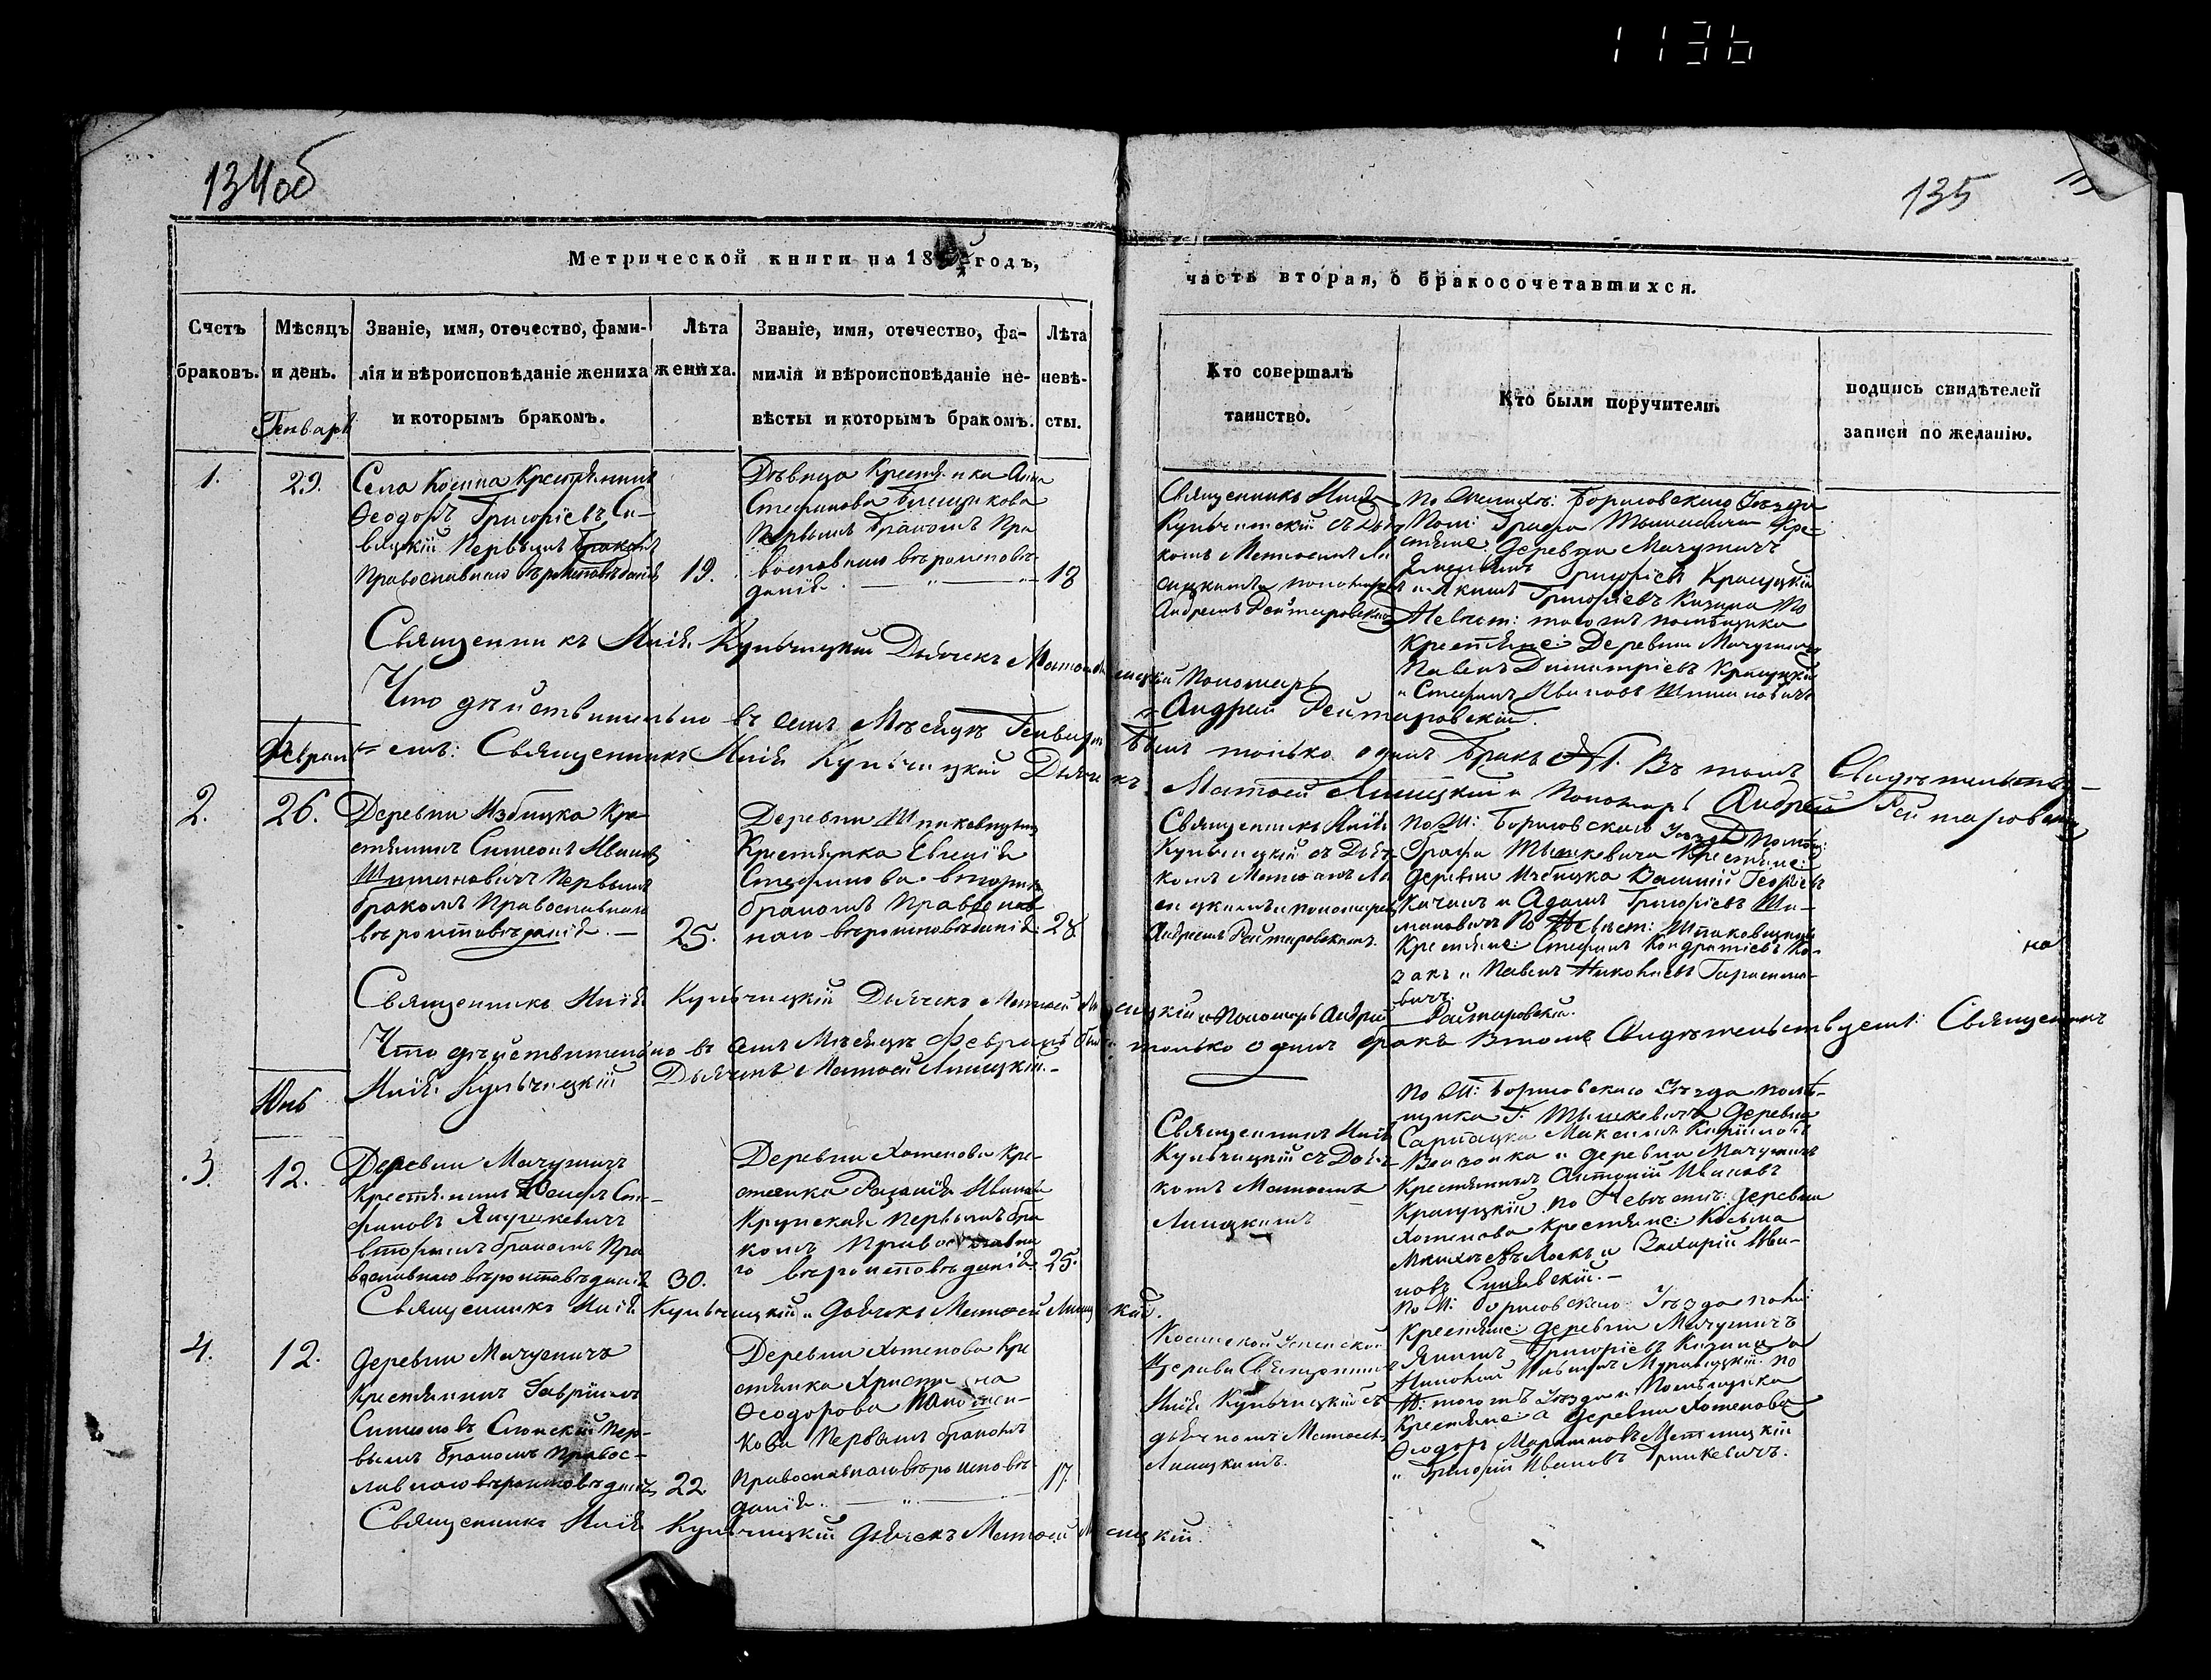 1136
134об
135
Метрической книги на 18 годъ,
часть вторая, о бракосочетавшихся.
Счетъ браковъ.
Мѣсяцъ и день.
Званіе, имя, отечество, фами-
лія и вѣроисповѣданіе жениха
и которымъ бракомъ.
Лѣта
жениха.
Званіе, имя, отечество, фа-
милія и вѣроисповѣданіе не-
вѣсты и которымъ бракомъ.
Лѣта
невѣ-
сты.
Кто совершалъ
таинство.
Кто были поручители.
подпись свидѣтелей
записи по желанію.
Генварь
1.
29.
Села Косина Крестянинъ
Ѳеодоръ Григоріевъ
Первымъ бракомъ
Православнаго вѣроисповѣданія
19.
Дѣвица Крестянка Анна
Стефанова
Первымъ бракомъ Пра
вославнаго вѣроисповѣ-
данія
18
Священникъ Илія
Кульчитскій съ Дья
комъ Матѳеемъ Ли
сицкимъ и пономаремъ
Андреемъ Рейтаровскимъ
По Женихѣ: Борисовскаго Уѣзда
Пом: Графа Тышкевича Кре-
стяне: деревни Мачужичъ
Григоріевъ Крапуцкій
и Якимъ Григоріевъ Казина По
Невѣст: тогожъ помѣщика
Крестяне: Деревни Мачужичъ
Павелъ Димитріевъ Крапуцкій
и Стефанъ Ивановъ
Священникъ Илія Кульчицкій Дьячекъ Матѳей Лисицкій Пономарь
Андрей Рейтаровскій.
Что дѣйствительно въ семъ Мѣсяцѣ Генварѣ былъ только одинъ бракъ №1. Въ томъ Свидѣтельству-
емъ: Священникъ Илія Кульчицкій Дьячекъ Матѳей Лисицкій и Пономарь Андрей Рейтаровскій
Феврал
2.
26.
Деревни Избицка Кре-
стянинъ Симеонъ Ивановъ
Шимановичъ Первымъ
бракомъ Православнаго
вѣроисповѣданія. —
25.
Деревни
Крестянка Евгенія
Стефанова. вторымъ
бракомъ Православ
наго вѣроисповѣданія.
28.
Священникъ Илія
Кульчицкій съ Дья-
комъ Матѳеемъ Ли
сицкимъ и пономаремъ
Андреемъ Рейтаровскимъ.
По Ж: Борисовскаго Уѣзда Помѣщ:
Графа Тышкевича Крестяне:
деревни Избицка Василій Георгіевъ
Качанъ и Адамъ Григоріевъ Ши-
мановичъ По Невѣст:
Крестяне: Стефанъ Кондратіевъ Ко-
закъ и Павелъ Николаевъ Гарасимо-
вичъ.
на
Священникъ Илія Кульчицкій Дьячекъ Матѳей Лисицкій и Пономарь Андрей Рейтаровскій.
Что дѣйствительно въ семъ Мѣсяцѣ Февралѣ былъ только одинъ бракъ Втомъ Свидѣтельствуемъ: Священникъ
Илія Кульчицкій Дьячекъ Матѳей Лисицкій.
Юнь
3.
12.
Деревни Мачужичъ
Крестянинъ Сте-
фановъ Янушкевичъ
вторымъ бракомъ Пра
вославнаго вѣроисповѣданія
30.
Деревни Хотенова Кре-
стянка Розалія Иванова
Крупская первымъ бра
комъ Православна
го вѣроисповѣданія.
25.
Священникъ Илія
Кульчицкій съ Дьяч-
комъ Матѳеемъ
Лисицкимъ
По Ж: Борисовскаго Уѣзда помѣ-
щика Г. Тышкевича деревни
Максимъ Кириловъ
и деревни Мачужичъ
Крестянинъ Антоній Ивановъ
Крапуцкій по Невѣстѣ: деревни
Хотенова Крестяне: Косьма
и Захарій Ива-
новъ
Священникъ Илія Кульчицкій и Дьячекъ Матѳей Лисицкій.
4.
12.
Деревни Мачужичъ
Крестянинъ Гавріилъ
Симеоновъ Пер-
вымъ бракомъ Правос-
лавнаго вѣроисповѣданія
22.
Деревни Хотенова Кре
стянка Христина
Ѳеодорова
Первымъ бракомъ
Православнаго вѣроисповѣ-
данія.
17.
Косинской Успенской
Церкви Священникъ
Илія Кульчицкій съ
дьячкомъ Матѳеемъ
Лисицкимъ.
По Ж: Борисовскаго Уѣзда
Крестяне: деревни Мачужичъ
Якимъ Григоріевъ Казина и
По
Н: тогожъ Уѣзда и Помѣщика
Крестяне: деревни Хотенова
Ѳеодоръ
и Григорій Ивановъ Гринкевичъ.
Священникъ Илія Кульчицкій Дьячекъ Матѳей Лисицкій.